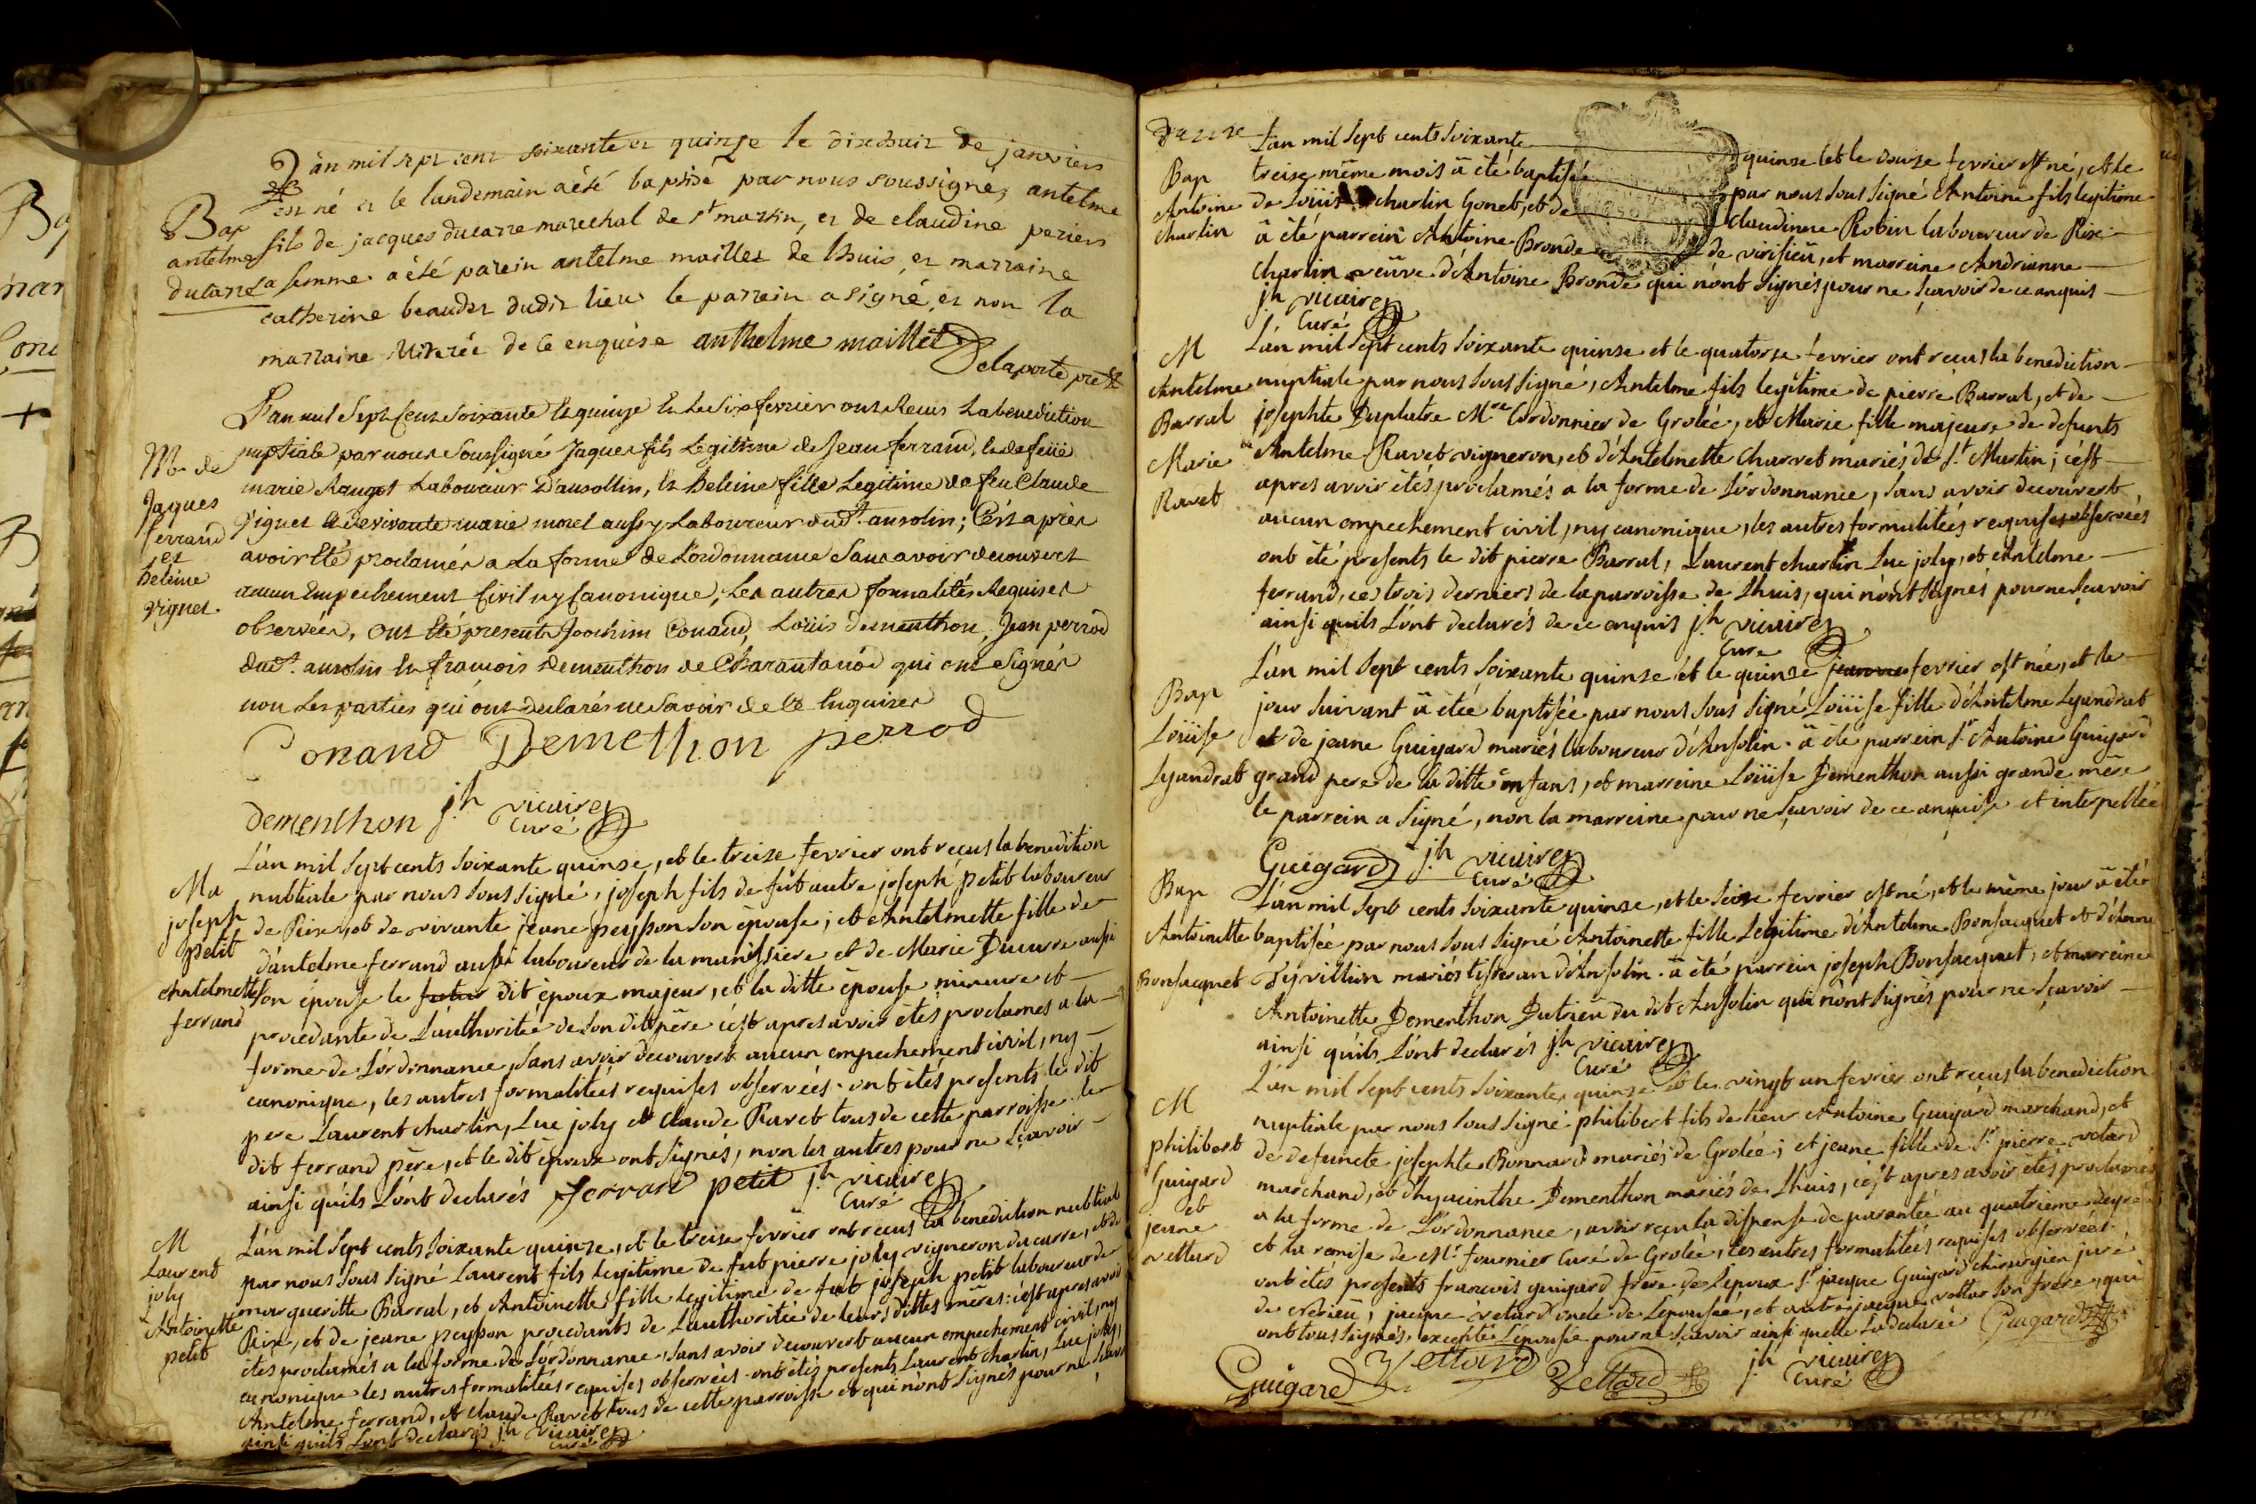 L'an mil sept cent soixante et quinze le dixhuit de janviers
Bap
est né et le landemain a été baptisé par nous soussigné, antelme
antelme
fils de jacques ducarre marechal de st martin, et de claudine periers
ducarre
sa femme a été parein antelme maillet de lhuis, et marraine
catherine beaudet dudit lieu le parrein a signé, et non la
marraine de ce enquise anthelme maillet
Delaporte
L'an mil Sept Cent Soixante et quinze et le Six fevrier ont Recus La benediction
M de
nuptiale par nous Soussigné Jaques fils Legitime de Jean ferrand, et de feüe
Jaques
marie Laboureur d'ansollin, et heleine fille Legitime de feu Claude
ferrand
vignet et de vivante marie morel aussy Laboureur dudt. ansolin; C'est après
et
avoir été proclamés a La forme de L'ordonnance Sans avoir decouvert
heleine
aucun Empechement Civil ny Canonique, Les autres formalités Requises
vignet.
observées, ont été presents Joachim Conand, Loüis dementhon, Jean perrod
dudt. ansolin et francois dementhon de qui ont Signés
non Les parties qui ont declarés ne Savoir de ce Enquises
Conand Demethon perrod
dementhon jh vicaire
Curé
L'an mil sept cents soixante quinze, et le treize fevrier ont recus la benediction
Ma
nubtiale par nous sous signé, joseph fils de fut autre joseph petit laboureur
joseph
de Rix, et de vivante jeane peysson son épouse; et Antelmette fille de
petit
d'antelme ferrand aussi laboureur de la et de Marie Ducarre aussi
Antelmette
son épouse le dit époux majeur, et la ditte épouse mineure et
ferrand
procedante de L'authoritée de son dit père c'est apres avoir étés proclames a la
forme de L'ordonnance, sans avoir decouvert aucun empechement civil, ny
canonique, les autres formalitées requises observées. ont étés presents le dit
pere Laurent charlin, Luc joly et Claude Ravet tous de cette parroisse. le
dit ferrand père, et le dit époux ont signés, non les autres pour ne sçavoir
ainsi qu'ils L'ont declarés ferrand petit jh vicaire
Curé
M
L'an mil sept cents soixante quinze, et le treise fevrier ont recus la benediction nubtiale
Laurent
par nous sous signé Laurent fils legitime de fut pierre joly vigneron ducarre, et de
joly
margueritte Barral, et Antoinette fille legitime de fut joseph petit laboureur de
Antoinette
Rix, et de jeane peysson procedants de L'authoritée de leurs dittes mères: c'est apres avoir
petit
étés proclamés a la forme de L'ordonnance, sans avoir decouvert aucun empechement civil, ny
canonique les autres formalitées requises observées. ont étés presents Laurent charlin, Luc joly,
Antelme ferrand, et claude Ravet tous de cette parroisse et qui n'ont signés pour ne
ainsi qu'ils L'ont declarés jh vicaire
curé
L'an mil sept cents soixante quinse et le douze fevrier est né, et le
Bap
treise même mois a été baptisé par nous sous signé Antoine fils legitime
Antoine
de Loüis charlin Gonet, et de Claudine Robin laboureur de Rix
charlin
a été parrein Antoine Bronde de virisieu, et marreine Andrianne
charlin veüve d'Antoine Bronde qui n'ont signés pour ne sçavoir de ce anquis
jh vicaire
Curé
M
L'an mil sept cents soixante quinse et le quatorse fevrier ont recus la benediction
Antelme
nuptiale par nous sous signé, Antelme fils legitime de pierre Barral, et de
Barral
josephte Duplatre Mre Cordonnier de Grolée, et Marie fille majeure de defunts
Marie
Antelme Ravet vigneron, et d'Antelmette charvet mariés de St Martin; c'est
Ravet
apres avoir étés proclamés a la forme de L'ordonnance, sans avoir decouvert
aucun empechement civil, ny canonique, les autres formalitées requises observées
ont été presents le dit pierre Barral, Laurent charlin Luc joly, et Antelme
ferrand, ces trois derniers de la parroisse de Lhuis, qui n'ont signés pour ne sçavoir
ainsi qu'ils L'ont declarés de ce enquis jh vicaire
Curé
L'an mil sept cents soixante quinse et le quinse fevrier est née, et le
Bap
jour suivant a étée baptisée par nous sous signé Loüise fille d'Antelme Lyandrat
Loüise
et de jeane Guigard mariés laboureur d'Ansolin. a été parrein Sr Antoine Guigard
Lyandrat
grand pere de la ditte enfans, et marreine Loüise Dementhon aussi grande mère
le parrein a signé, non la marreine pour ne sçavoir de ce anquise et interpellée
Guigard jh vicaire
Curé
Bap
L'an mil sept cents soixante quinse, et le seise fevrier est né, et le même jour a été
Antoinette
baptisée par nous sous signé Antoinette fille legitime d'Antelme Bonsacquet et d'Anne
Bonsacquet
mariés tisseran d'Ansolin. a été parrein joseph Bonsacquet, et marreine
Antoinette Dementhon Dutrieu du dit Ansolin qui n'ont signés pour ne sçavoir
ainsi qu'ils L'ont declarés jh vicaire
Curé
M
L'an mil sept cents soixante quinse et le vingt un fevrier ont recus la benediction
philibert
nuptiale par nous sous signé philibert fils de sieur Antoine Guigard marchand, et
Guigard
de defuncte josephte Bonnard mariés de Grolée; et jeane fille de Sr pierre vetard
et
marchand, et d'hyacinthe Dementhon mariés de Lhuis, c'est apres avoir étés proclamés
jeane
a la forme de L'ordonnance, avoir reçu la dispense de parantée au quatrieme degré
vettard
et la remise de Mr. fournier Curé de Grolée, les autres formalitées requises observées.
ont étés presents francois guigard frère de L'epoux Sr jacque Guigard chirurgien juré
de jacque vetard oncle de L'epousée, et autre jacque vettar son frère, qui
ont tous signés, excepté L'epouse pour ne sçavoir ainsi quelle la declarée Guigard
Guigard Vettard Vettard jh vicaire
Curé